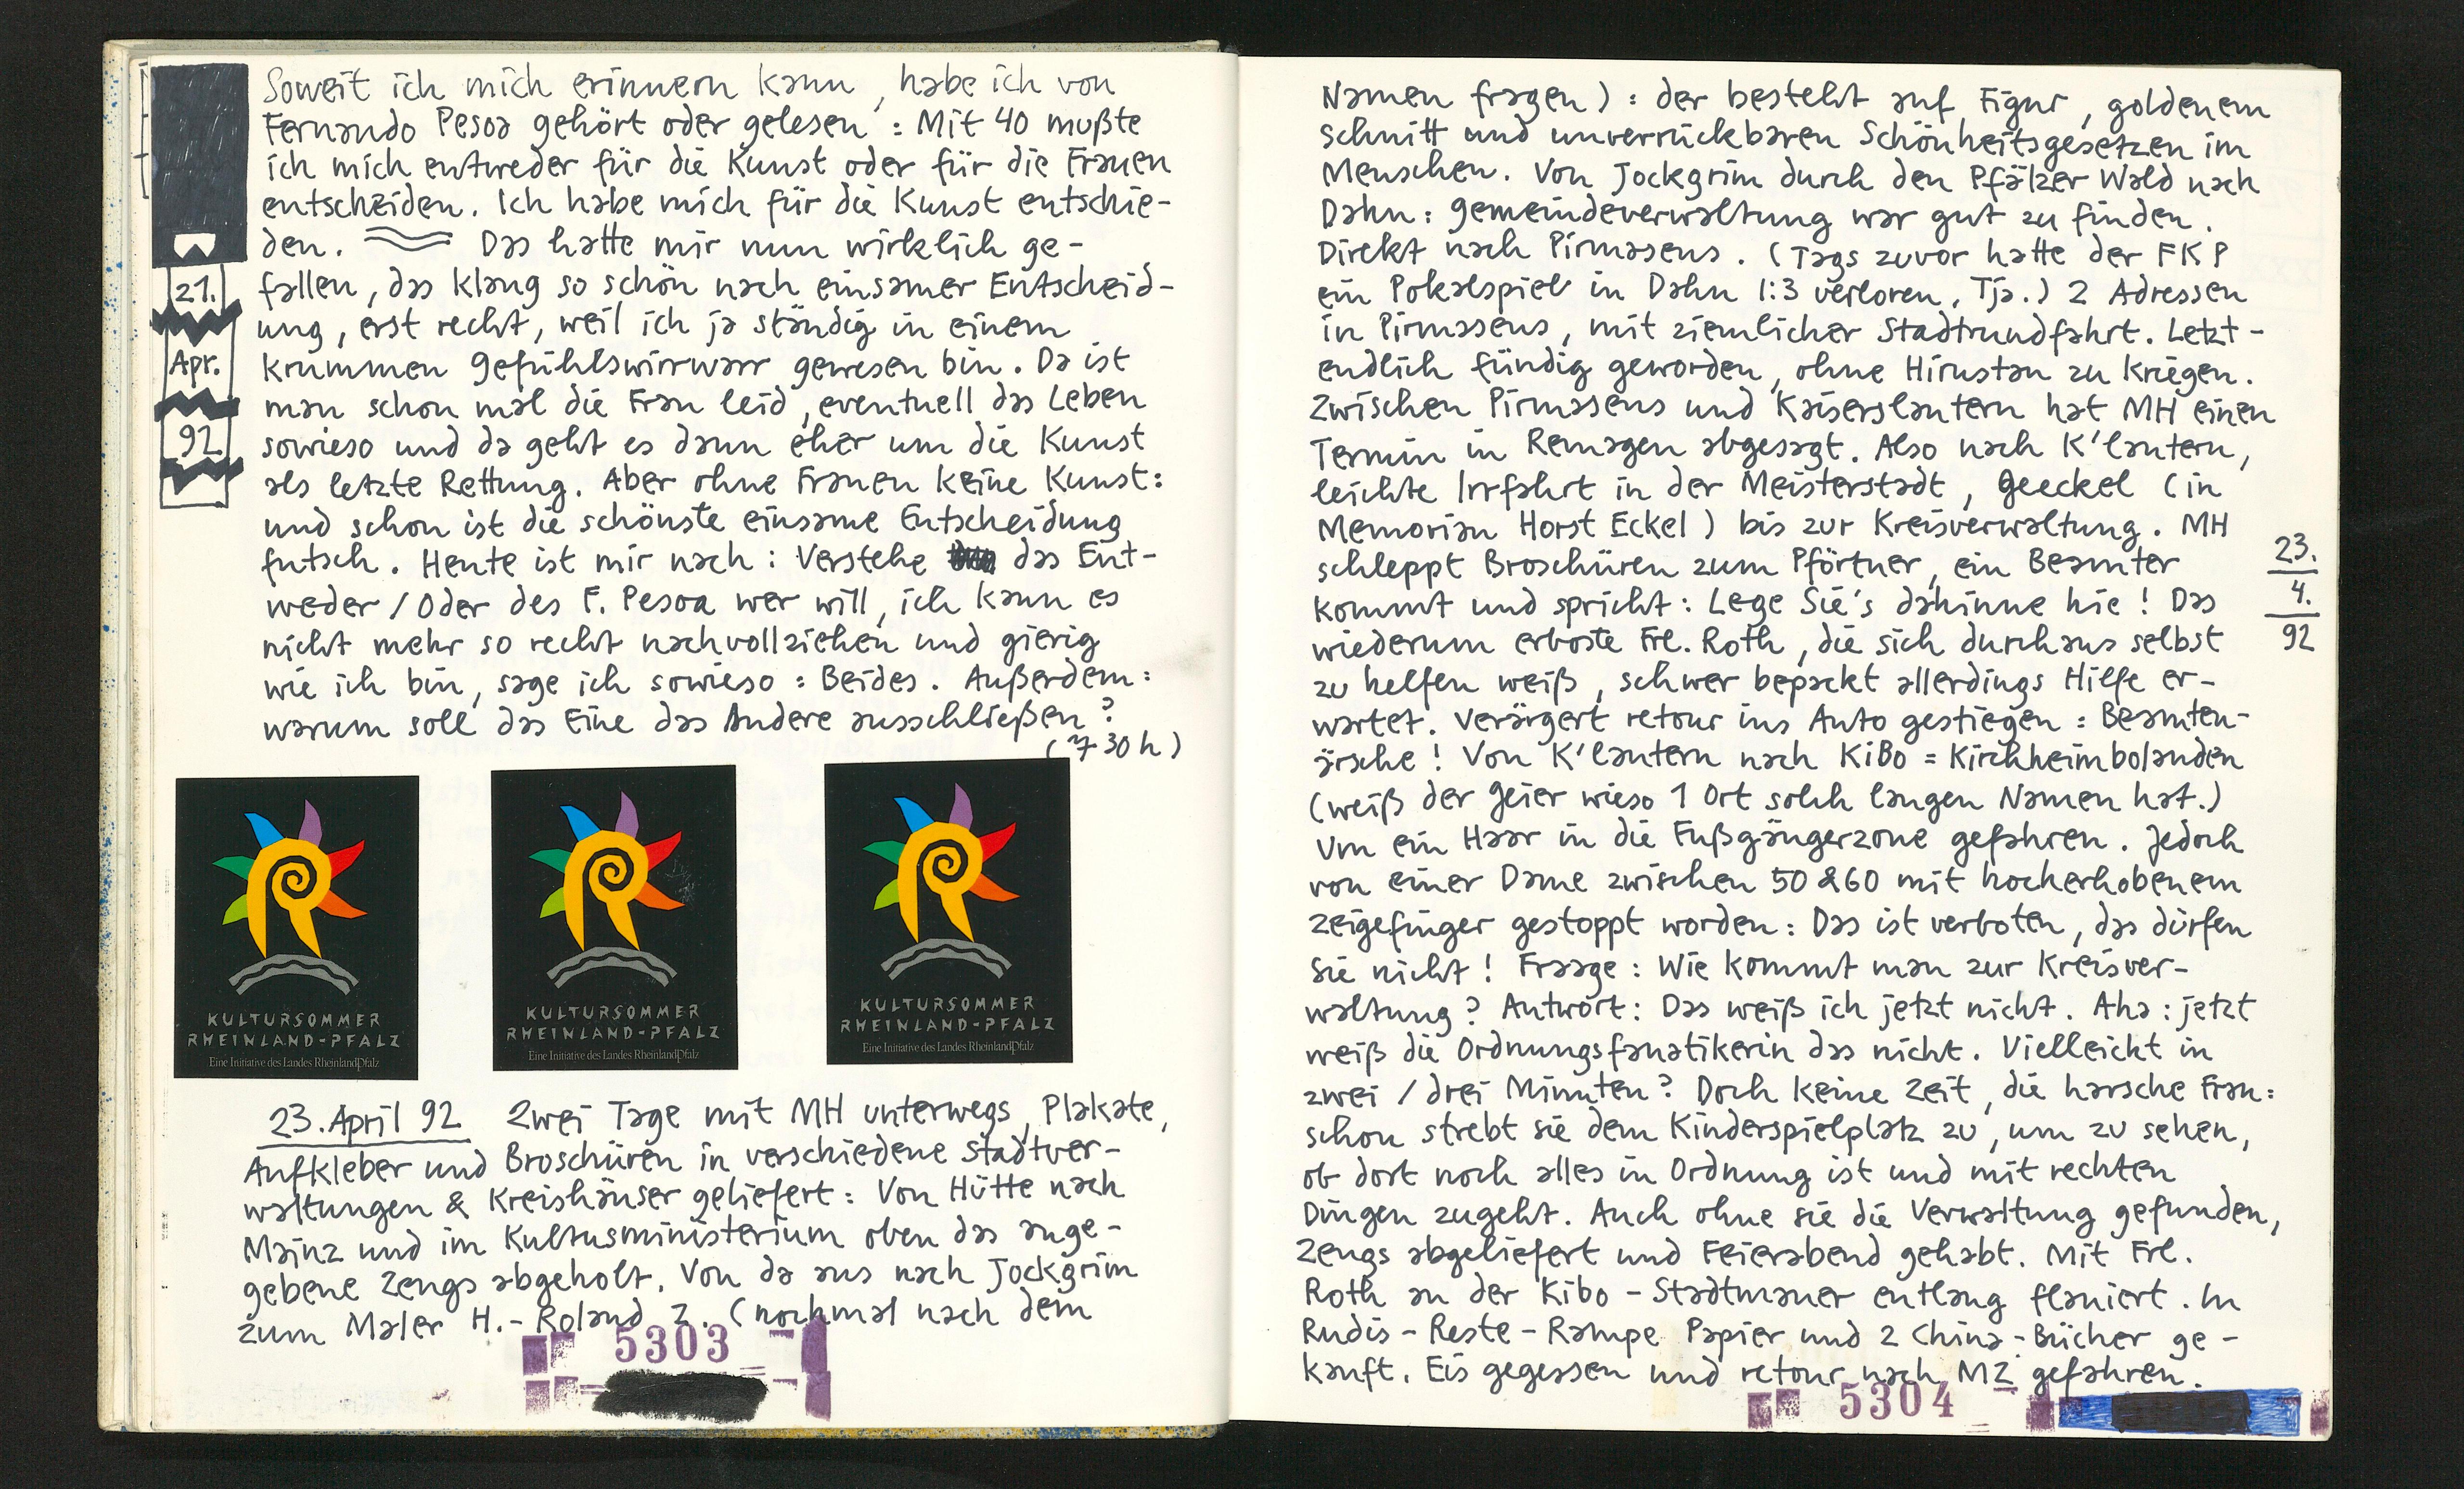 Soweit ich mich erinnern kann, habe ich von
Fernando Pesoa gehört oder gelesen: Mit 40 mußte
ich mich entweder für die Kunst oder für die Frauen
entscheiden. Ich habe mich für die Kunst entschie-
den. Das hatte mir nun wirklich ge-
fallen, das klang so schön nach einsamer Entscheid-
ung, erst recht, weil ich ja ständig in einem
krummen Gefühlswirrwarr gewesen bin. Da ist
man schon mal die Frau leid, eventuell das Leben
sowieso und da geht es dann eher um die Kunst
als letzte Rettung. Aber ohne Frauen keine Kunst:
und schon ist die schönste einsame Entscheidung
futsch. Heute ist mir nach: Verstehe das Ent-
weder/Oder des F. Pesoa wer will, ich kann es
nicht mehr so recht nachvollziehen und gierig
wie ich bin, sage ich sowieso: Beides. Außerdem:
warum soll das Eine das Andere ausschließen?
(7 30 h)
21.
Apr.
92
KULTURSOMMER
RHEINLAND-PFALZ
Eine Initiative des Landes RheinlandPfalz
KULTURSOMMER
RHEINLAND-PFALZ
Eine Initiative des Landes RheinlandPfalz
KULTURSOMMER
RHEINLAND-PFALZ
Eine Initiative des Landes RheinlandPfalz
23. April 92 Zwei Tage mit MH unterwegs, Plakate,
Aufkleber und Broschüren in verschiedene Stadtver-
waltungen & Kreishäuser geliefert: Von Hütte nach
Mainz und im Kultusministerium oben das ange-
gebene Zeugs abgeholt. Von da aus nach Jockgrim
zum Maler H.-Roland Z. (nochmal nach dem
5303
Namen fragen): der besteht auf Figur, goldenem
Schnitt und unverrückbaren Schönheitsgesetzen im
Menschen. Von Jockgrim durch den Pfälzer Wald nach
Dahn: Gemeindeverwaltung war gut zu finden.
Direkt nach Pirmasens. (Tags zuvor hatte der FKP
ein Pokalspiel in Dahn 1:3 verloren, Tja.) 2 Adressen
in Pirmasens, mit ziemlicher Stadtrundfahrt. Letzt-
endlich fündig geworden, ohne Hirnstan zu kriegen.
Zwischen Pirmasens und Kaiserslautern hat MH einen
Termin in Remagen abgesagt. Also nach K'lautern,
leichte Irrfahrt in der Meisterstadt, Geeckel (in
Memoriam Horst Eckel) bis zur Kreisverwaltung. MH
schleppt Broschüren zum Pförtner, ein Beamter
kommt und spricht: Lege Sie's dahinne hie! Das
wiederum erboste Frl. Roth, die sich durchaus selbst
zu helfen weiß, schwer bepackt allerdings Hilfe er-
wartet. Verärgert retour ins Auto gestiegen: Beamten-
ärsche! Von K'lautern nach KiBo = Kirchheimbolanden
(weiß der Geier wieso 1 Ort solch langen Namen hat.)
Um ein Haar in die Fußgängerzone gefahren. Jedoch
von einer Dame zwischen 50 & 60 mit hocherhobenem
Zeigefinger gestoppt worden: Das ist verboten, das dürfen
Sie nicht! Fraage: Wie kommt man zur Kreisver-
waltung? Antwort: Das weiß ich jetzt nicht. Aha: jetzt
weiß die Ordnungsfanatikerin das nicht. Vielleicht in
zwei / drei Minuten? Doch keine Zeit, die harsche Frau:
schon strebt sie dem Kinderspielplatz zu, um zu sehen,
ob dort noch alles in Ordnung ist und mit rechten
Dingen zugeht. Auch ohne sie die Verwaltung gefunden,
Zeugs abgeliefert und Feierabend gehabt. Mit Frl.
Roth an der Kibo-Stadtmauer entlang flaniert. In
Rudis-Reste-Rampe Papier und 2 China-Bücher ge-
kauft. Eis gegessen und retour nach MZ gefahren.
23.
4.
92
5304